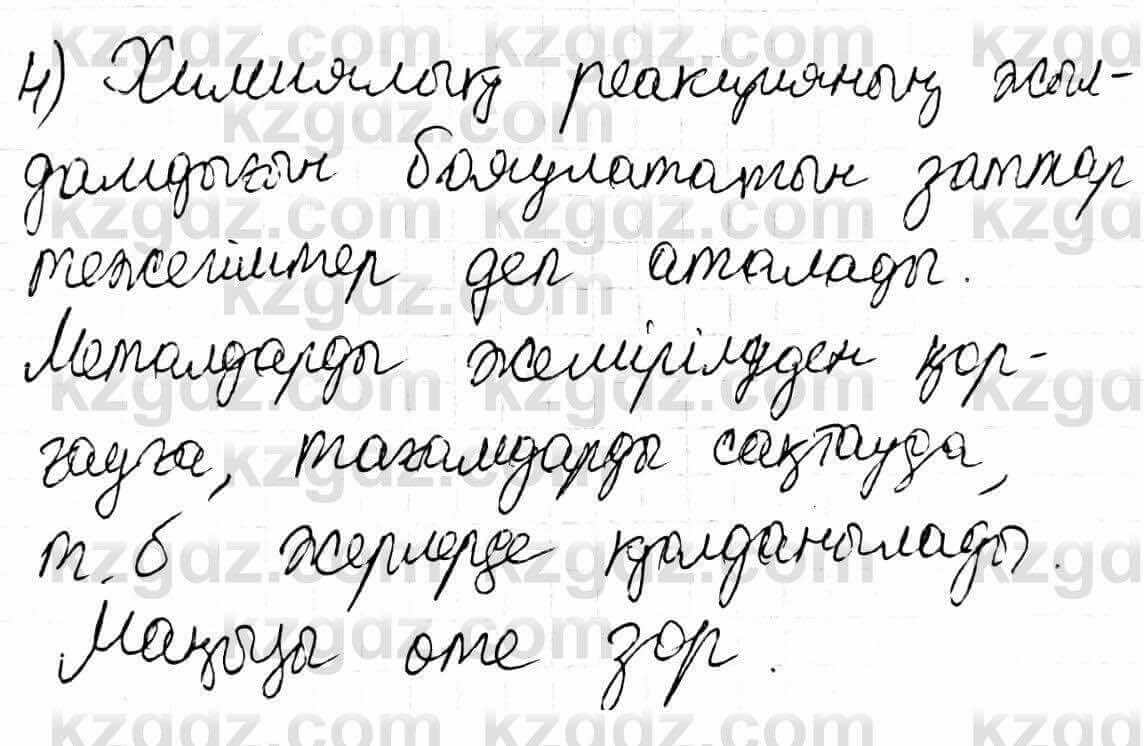 4) Химиялық реакцияның жыл-
дамдығын баяулататын заттар
тежегіштер деп аталады.
Металдарды жемірілуден қор-
ғауға, тағамдарды сақтауда,
т.б жерлерде қолданылады.
Маңызы өте зор.